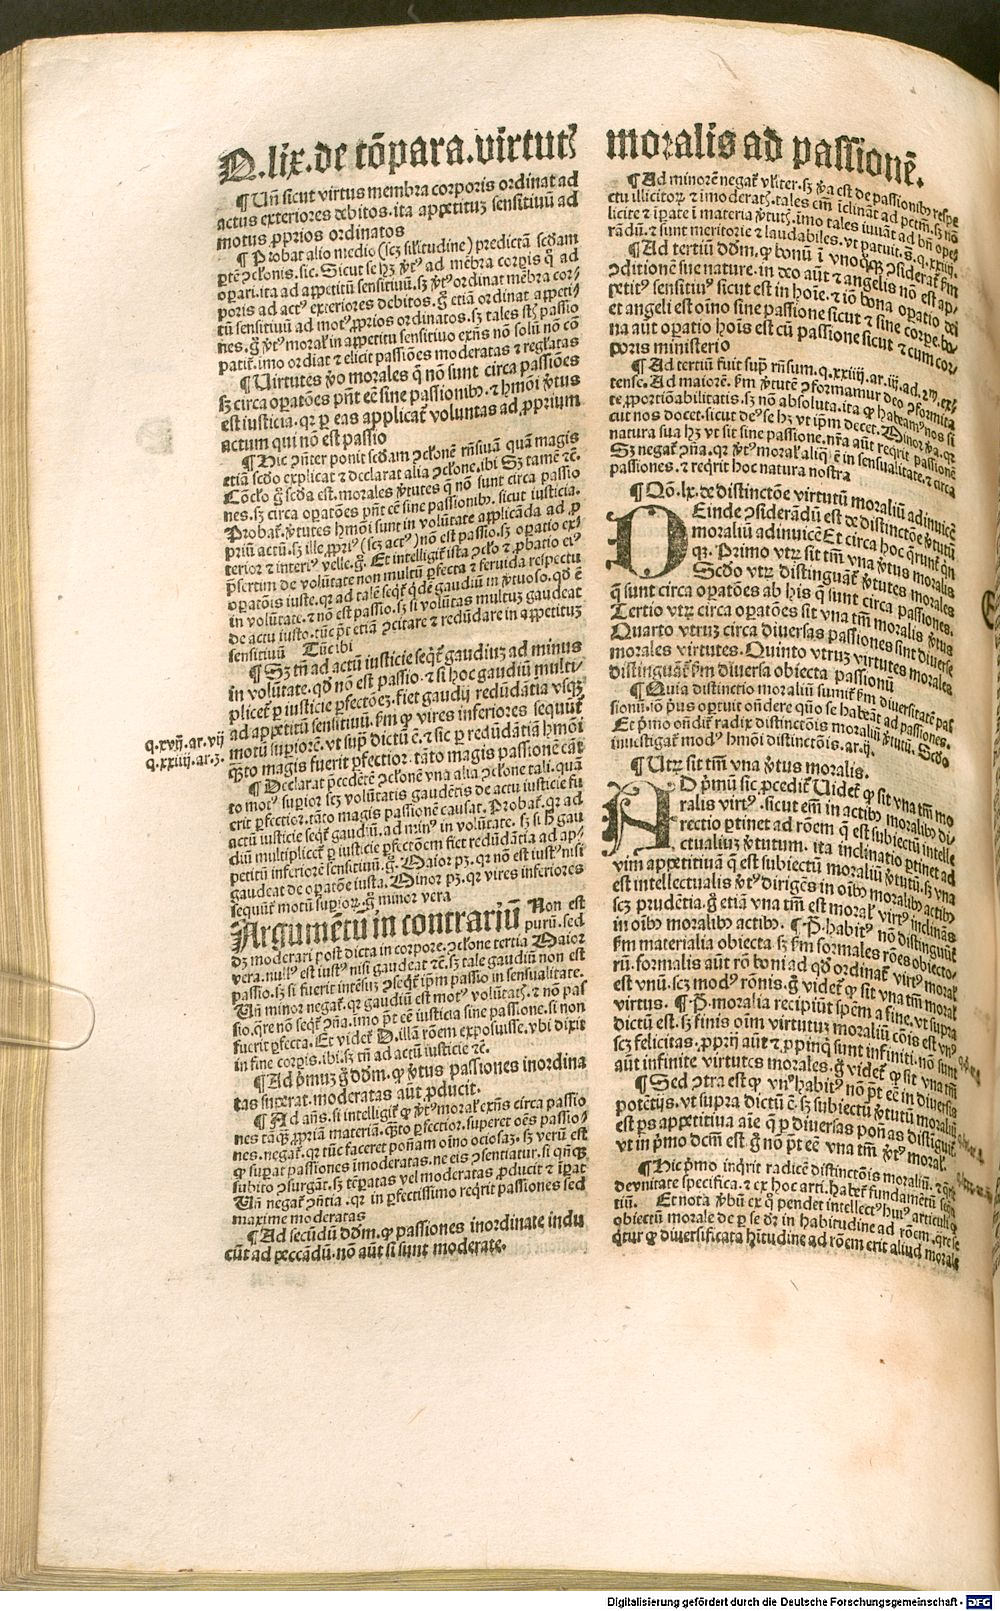 Q.lix.de cōpara.virtutꝭ moralis ad passionē.
¶ Uñ sicut virtus membra corporis ordinat ad
actus exteriores debitos.ita appetituꝫ sensitiuū ad
motus ꝓprios ordinatos
¶ Probat alio medio (scꝫ sil'itudine) predictā scd'am
ꝑtē ꝯcl'onis.sic. Sicut se hꝫ ꝟtꝰ ad mēbra corꝑis q̄ ad
oꝑari.ita ad appetitū sensitiuū.sꝫ ꝟtꝰ ordinat mēbra cor-
poris ad actꝰ exteriores debitos.g̊ etiā ordinat appeti-
tū sensitiuū ad motꝰ ꝓprios ordinatos.sꝫ tales st̄ passio
nes.g̊ ꝟtꝰ moral' in appetitu sensitiuo exn̄s nō solū nō cō
patit̄.imo ordiat ⁊ elicit passiōes moderatas ⁊ regl'atas
¶ Uirtutes ꝟo morales q̄ nō sunt circa passiōes
sꝫ circa oꝑatōes pn̄t eē sine passionibꝰ. ⁊ hmōi ꝟtus
est iusticia.qꝛ ꝑ eas applicat̄ voluntas ad ꝓprium
actum qui nō est passio
¶ Hic ꝯn̄ter ponit scd'am ꝯcl'onē rn̄siuā quā magis
etiā scd'o explicat ⁊ declarat alia ꝯcl'one.ibi Sꝫ tamē ⁊c̄.
Cōcl'o g̊ scd'a est.morales ꝟtutes q̄ nō sunt circa passio
nes.sꝫ circa oꝑatōes pn̄t eē sine passionibꝰ.sicut iusticia.
Probat̄.ꝟtutes hmōi sunt in volūtate applicāda ad ꝓ
priū actū.sꝫ ille ꝓpriꝰ (scꝫ actꝰ) nō est passio.sꝫ oꝑatio ex-
terior ⁊ interiꝰ velle.g̊. Et intelligit̄ ista ꝯcl'o ⁊ ꝓbatio eiꝰ
p̄sertim de volūtate non multū ꝑfecta ⁊ feruida respectu
oꝑatōis iuste.qꝛ ad talē seqt̄ qdē gaudiū in ꝟtuoso.qd' ē
in volūtate.⁊ nō est passio.sꝫ si volūtas multuꝫ gaudeat
de actu iusto.tūc pt̄ etiā ꝯcitare ⁊ redūdare in appetituꝫ
sensitiuū Tūc ibi
¶ Sꝫ tn̄ ad actū iusticie seqt̄ gaudiuꝫ ad minus
in volūtate.qd' nō est passio.⁊ si hoc gaudiū multi-
plicet̄ ꝑ iusticie ꝑfectōeꝫ.fiet gaudij redūdātia vsqꝫ
ad appetitū sensitiuū.fm̄ ꝙ vires inferiores sequūt̄
motū suꝑiorē.vt sup̄ dictū ē.⁊ sic ꝑ redūdātiā hmōi
q̄to magis fuerit ꝑfectior.tāto magis passionē cāt
q.xvij.ar.vij
q.xxiiij.ar.3.
¶ Declarat p̄cedētē ꝯcl'onē vna alia ꝯcl'one tali.quā
to motꝰ suꝑior scꝫ volūtatis gaudētis de actu iusticie fu
erit ꝑfectior.tāto magis passionē causat. Probat̄.qꝛ ad
actū iusticie seqt̄ gaudiū.ad minꝰ in volūtate. sꝫ si h̄ gau
diū multiplicet̄ ꝑ iusticie ꝑfectōem fiet redūdātia ad ap-
petitū inferiorē sensitiuū.g̊. Maior pꝫ.qꝛ nō est iustꝰ nisi
gaudeat de oꝑatōe iusta. Minor pꝫ.qꝛ vires inferiores
sequūt̄ motū suꝑioꝝ.g̊ minor vera
Argumētū in contrariū Non est
purū.sed
dꝫ moderari post dicta in corpore.ꝯcl'one tertia Maior
vera.nullꝰ est iustꝰ nisi gaudeat ⁊c̄.sꝫ tale gaudiū non est
passio.sꝫ si fuerit intēsuꝫ ꝯseqt̄ ip̄m passio in sensualitate.
Uñ minor negat̄.qꝛ gaudiū est motꝰ volūtatꝭ.⁊ nō pas
sio.qre nō seqt̄ ꝯn̄a.imo pt̄ eē iusticia sine passione.si non
fuerit ꝑfecta. Et videt̄ D.illā rōem exposuisse.vbi dixit
in fine corꝑis.ibi.sꝫ tn̄ ad actū iusticie ⁊c̄.
¶ Ad p̄muꝫ g̊ dd'm.ꝙ ꝟtus passiones inordina
tas suꝑat.moderatas aūt ꝓducit.
¶ Ad an̄s.si intelligit̄ ꝙ ꝟtꝰ moral' exn̄s circa passio
nes tāqꝫ ꝓpriā materiā.q̄to ꝑfectior.suꝑet oēs passio-
nes.negat̄.qꝛ tūc faceret poñam oīno ociosaꝫ.sꝫ verū est
ꝙ suꝑat passiones īmoderatas.ne eis ꝯsentiatur.si qn̄qꝫ
subito ꝯsurgāt.sꝫ tēꝑatas vel moderatas ꝓducit ⁊ īꝑat
Uñ negat̄ ꝯn̄tia.qꝛ in ꝑfectissimo reqrit passiones sed
maxime moderatas
¶ Ad secūdū dd'm.ꝙ passiones inordinate indu
cūt ad peccādū.nō aūt si sunt moderate.
¶ Ad minorē negat̄ vl'iter.sꝫ ꝟa est de passionibꝰ respe
ctu illicitoꝝ ⁊ īmoderatꝭ.tales em̄ īclināt ad pctm̄.sꝫ nō
licite ⁊ īꝑate ī materia ꝟtutꝭ.imo tales iuuāt ad bn̄ oꝑe
rādū.⁊ sunt meritorie ⁊ laudabiles.vt patuit.s̄.q.xxiiij.
¶ Ad tertiū dd'm.ꝙ bonū ī vnoqꝫ ꝯsiderat̄ fm̄
ꝯditionē sue nature.in deo aūt ⁊ angelis nō est ap-
petitꝰ sensitiuꝰ sicut est in hoīe.⁊ iō bona oꝑatio dei
et angeli est oīno sine passione sicut ⁊ sine corꝑe.bo-
na aūt oꝑatio hoīs est cū passione sicut ⁊ cum cor-
poris ministerio
¶ Ad tertiū fuit sup̄ rn̄sum.q.xxiiij.ar.iij.ad.2ᵐ.exi-
tense. Ad maiorē.fm̄ ꝟtutē ꝯformamur deo ꝯformita
te ꝓportiōabilitatis.sꝫ nō absoluta.ita ꝙ habeamꝰ nos si
cut nos docet.sicut deꝰ se hꝫ vt ip̄m decet. Minor ꝟa.qꝛ
natura sua hꝫ vt sit sine passione.nr̄a aūt reqrit passionē
Sꝫ negat̄ ꝯn̄a.qꝛ ꝟtꝰ moral' aliq̄ ē in sensualitate.⁊ circa
passiones.⁊ reqrit hoc natura nostra
¶ Qō.lx.de distinctōe virtutū moraliū adinuicē
DEinde ꝯsiderādū est de distinctōe ꝟtutū
moraliū adinuicē Et circa hoc qrunt̄ qn
qꝫ. Primo vtꝝ sit tm̄ vna ꝟtus moralis
Scd'o vtꝝ distinguāt̄ ꝟtutes morales
q̄ sunt circa oꝑatōes ab his q̄ sunt circa passiones.
Tertio vtꝝ circa oꝑatōes sit vna tm̄ moralis ꝟtus
Quarto vtruꝫ circa diuersas passiones sint diuerse
morales virtutes. Quinto vtruꝫ virtutes morales
distinguāt̄ fm̄ diuersa obiecta passionū
¶ Quia distinctio moraliū sumit̄ fm̄ diuersitatē pas
sionū.iō p̄us oꝑtuit on̄dere quō se habeāt ad passiones.
Et p̄mo on̄dit̄ radix distinctōis moraliū ꝟtutū. Scd'o
inuestigat̄ modꝰ hmōi distinctōis.ar.ij.
¶ Utꝝ sit tm̄ vna ꝟtus moralis.
AD p̄mū sic ꝓcedit̄ Uidet̄ ꝙ sit vna tm̄ mo
ralis virtꝰ. sicut em̄ in actibꝰ moralibꝰ di-
rectio ꝑtinet ad rōem q̄ est subiectū intelle
ctualiuꝫ ꝟtutum. ita inclinatio ꝑtinet ad
vim appetitiuā q̄ est subiectū moraliū ꝟtutū.sꝫ vna
est intellectualis ꝟtꝰ dirigēs in oībꝰ moralibꝰ actibꝰ
scꝫ prudētia.g̊ etiā vna tm̄ est moral' virtꝰ inclināns
in oībꝰ moralibꝰ actibꝰ. ¶ P̄.habitꝰ nō distinguūt̄
fm̄ materialia obiecta sꝫ fm̄ formales rōes obiecto-
rū.formalis aūt rō boni ad qd' ordinat̄ virtꝰ moral'
est vnū.scꝫ modꝰ rōnis.g̊ videt̄ ꝙ sit vna tm̄ moral'
virtus. ¶ P̄.moralia recipiūt sp̄em a fine.vt supra
dictū est.sꝫ finis oīm virtutuꝫ moraliū cōis est vnꝰ
scꝫ felicitas.ꝓprij aūt ⁊ ꝓpinqi sunt infiniti.nō sunt
aūt infinite virtutes morales.g̊ videt̄ ꝙ sit vna tm̄
¶ Sed ꝯtra est ꝙ vnꝰ habitꝰ nō pt̄ eē in diuersis
potētijs.vt supra dictū ē.sꝫ subiectū ꝟtutū moraliū
est ps̄ appetitiua aīe q̄ ꝑ diuersas poñas distiguit̄
vt in p̄mo dcm̄ est.g̊ nō pt̄ eē vna tm̄ ꝟtꝰ moral'.
¶ Hic p̄mo inqrit radicē distinctōis moraliū.⁊ qrit
de vnitate specifica.⁊ ex hoc arti.habet̄ fundamētū seq̄n
tiū. Et nota ꝟbū ex q̊ pendet intellectꝰ huiꝰ articuli ꝙ
obiectū morale de ꝑ se dr̄ in habitudine ad rōem.qre se
q̄tur ꝙ diuersificata h̄itudine ad rōem erit aliud morale